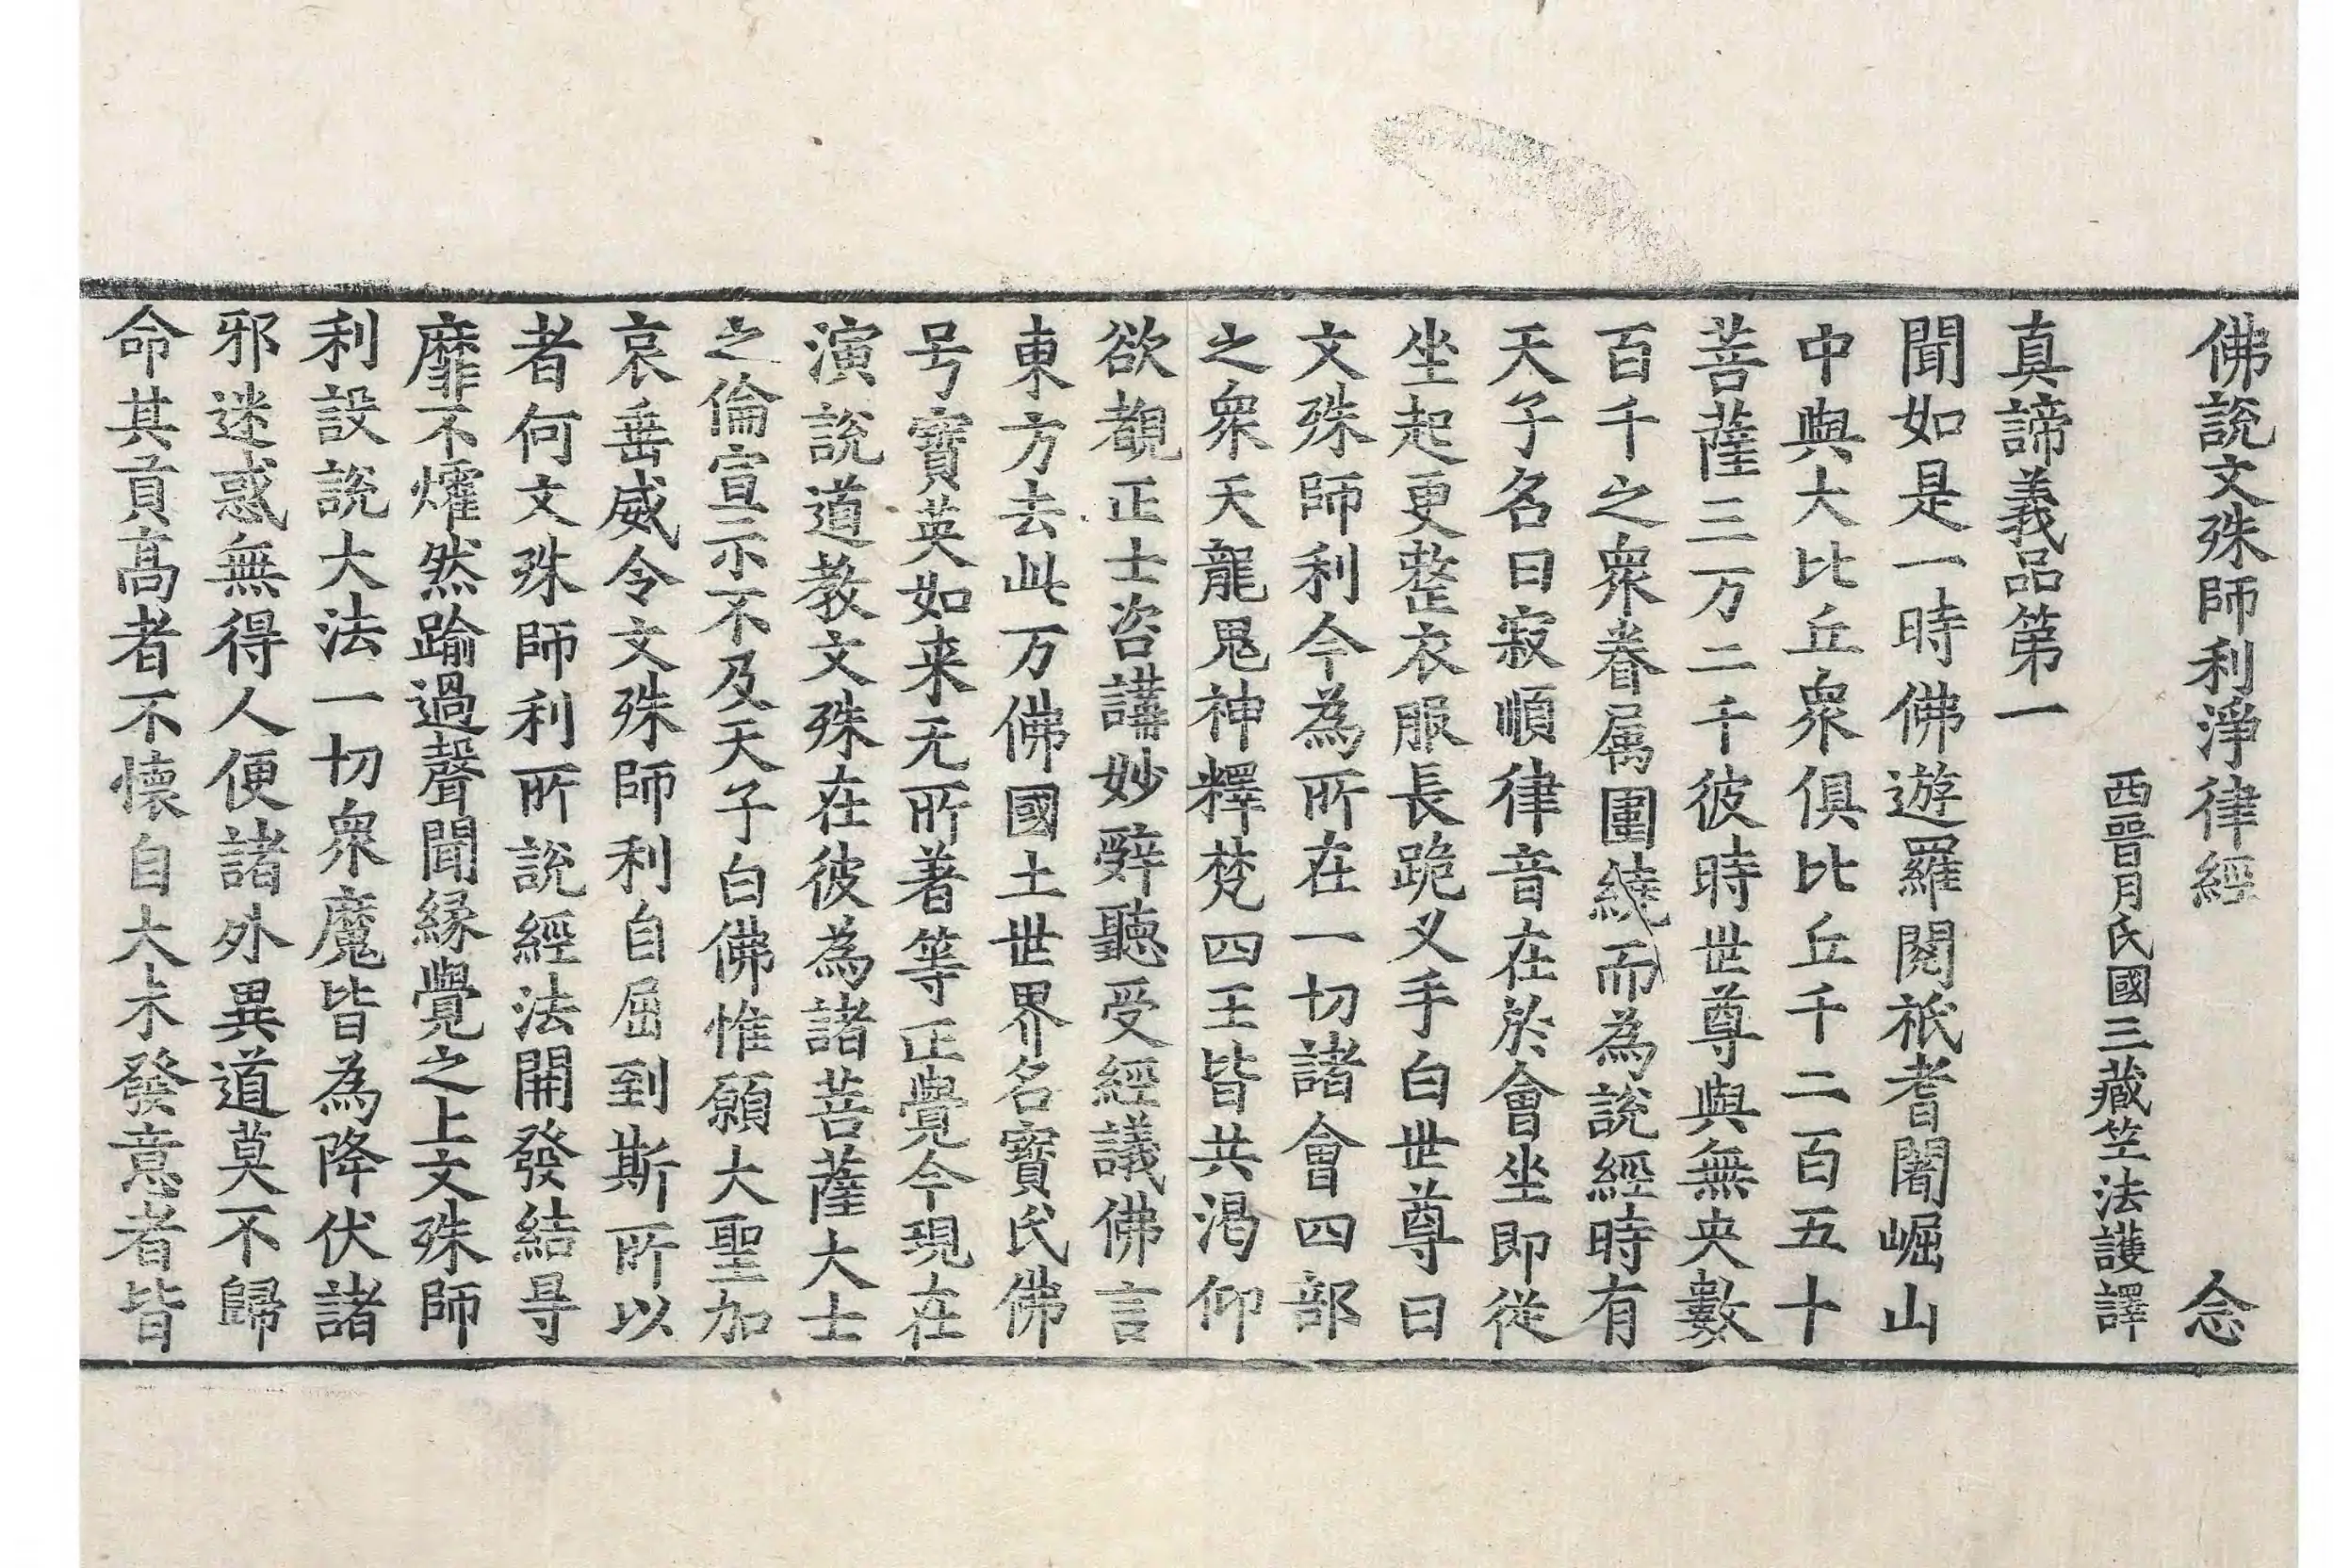 佛說文殊師利淨律經 念
西晉月氏國三藏竺法護譯
真諦義品第一
聞如是一時佛遊羅閱祇耆闍崛山
中與大比丘眾俱比丘千二百五十
菩薩三万二千彼時世尊與無央數
百千之眾眷属圍繞而為說經時有
天子名曰寂順律音在於會坐即從
坐起更整衣服長跪叉手白世尊曰
文殊師利今為所在一切諸會四部
之眾天龍鬼神釋梵四王皆共渴仰
欲覩正士咨講妙辭聽受經議佛言
東方去此万佛國土世界名寶氏佛
号寶英如来无所著等正覺今現在
演說道教文殊在彼為諸菩薩大士
之倫宣示不及天子白佛惟願大聖加
哀垂威令文殊師利自屈到斯所以
者何文殊師利所說經法開發結㝵
靡不燿然踰過聲聞緣覺之上文殊師
利設說大法一切眾魔皆為降伏諸
邪迷惑無得人便諸外異道莫不歸
命其貢高者不懷自大未發意者皆